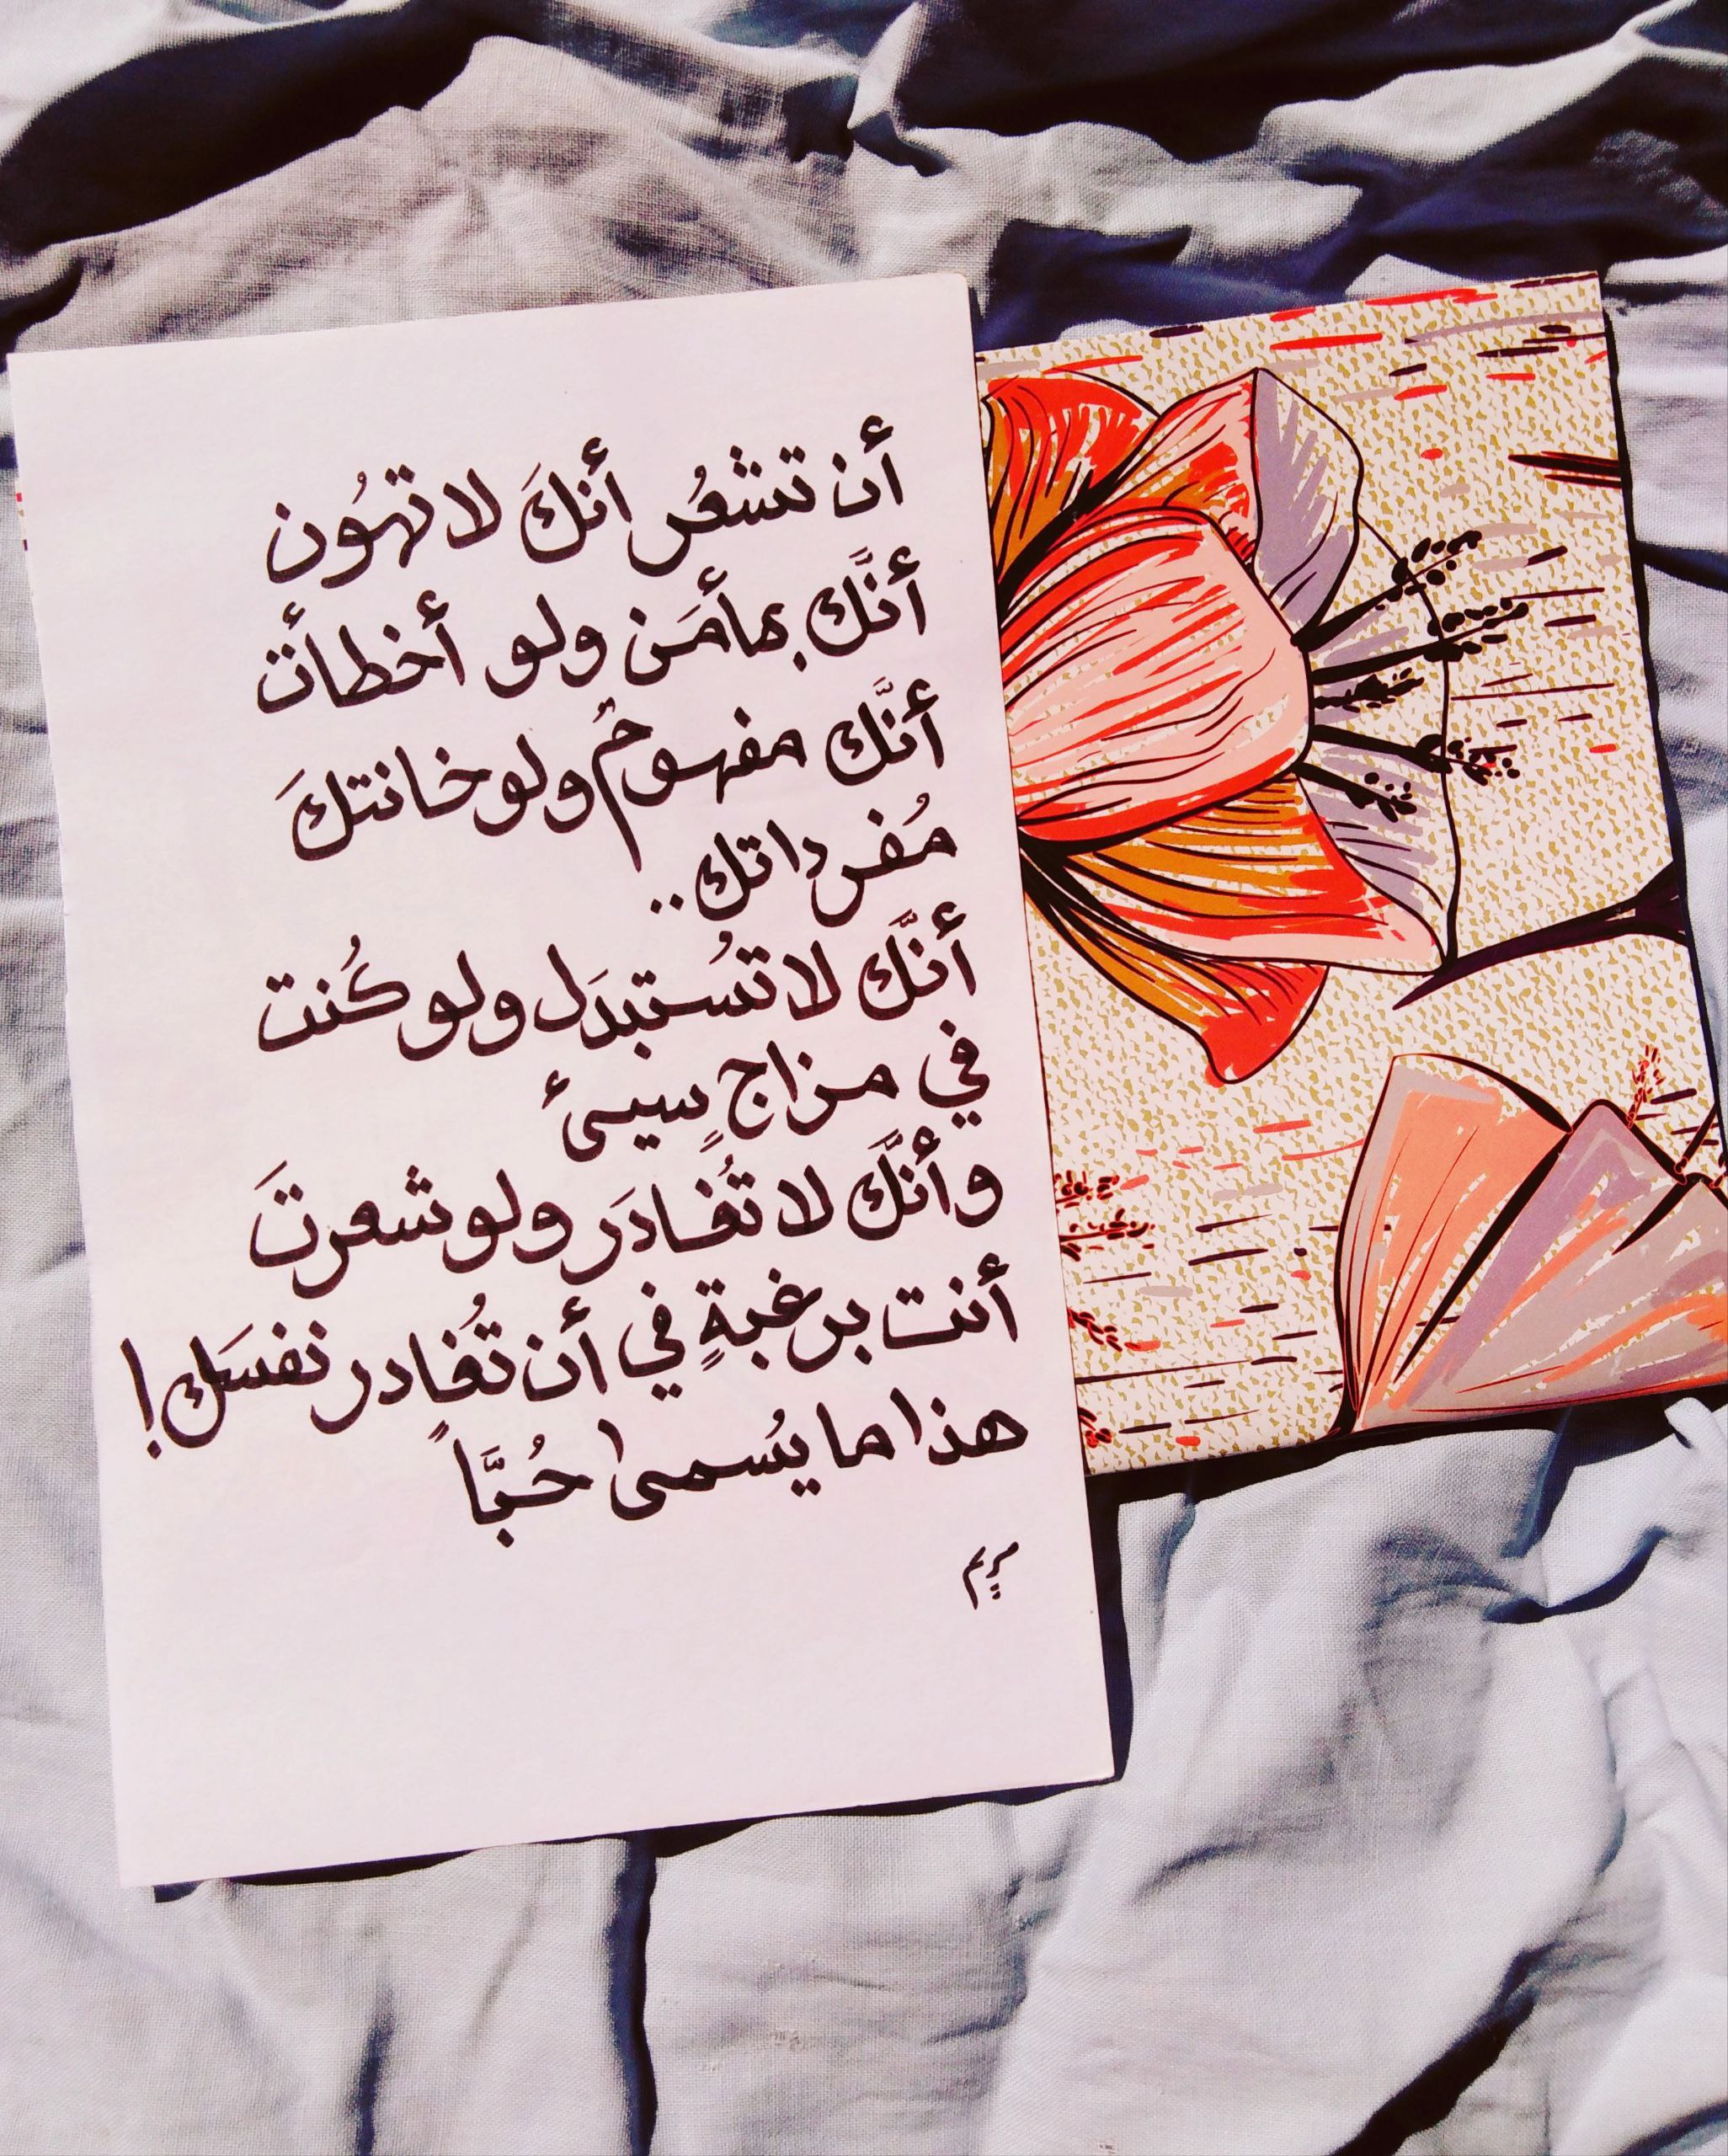 أن تشعُر أنكَ لا تهُون
أنَّك بمأمَن ولو أخطأت
أنَّك مفهومٌ ولو خانتكَ
مُفرداتك..
أنَّك لا تُستبدَل ولو كُنت
في مزاجٍ سيئ
وأنَّك لا تُغادَر ولو شعرتَ
أنت برغبةٍ في أن تُغادر نفسَك!
هذا ما يُسمى حُبَّاً
مريم